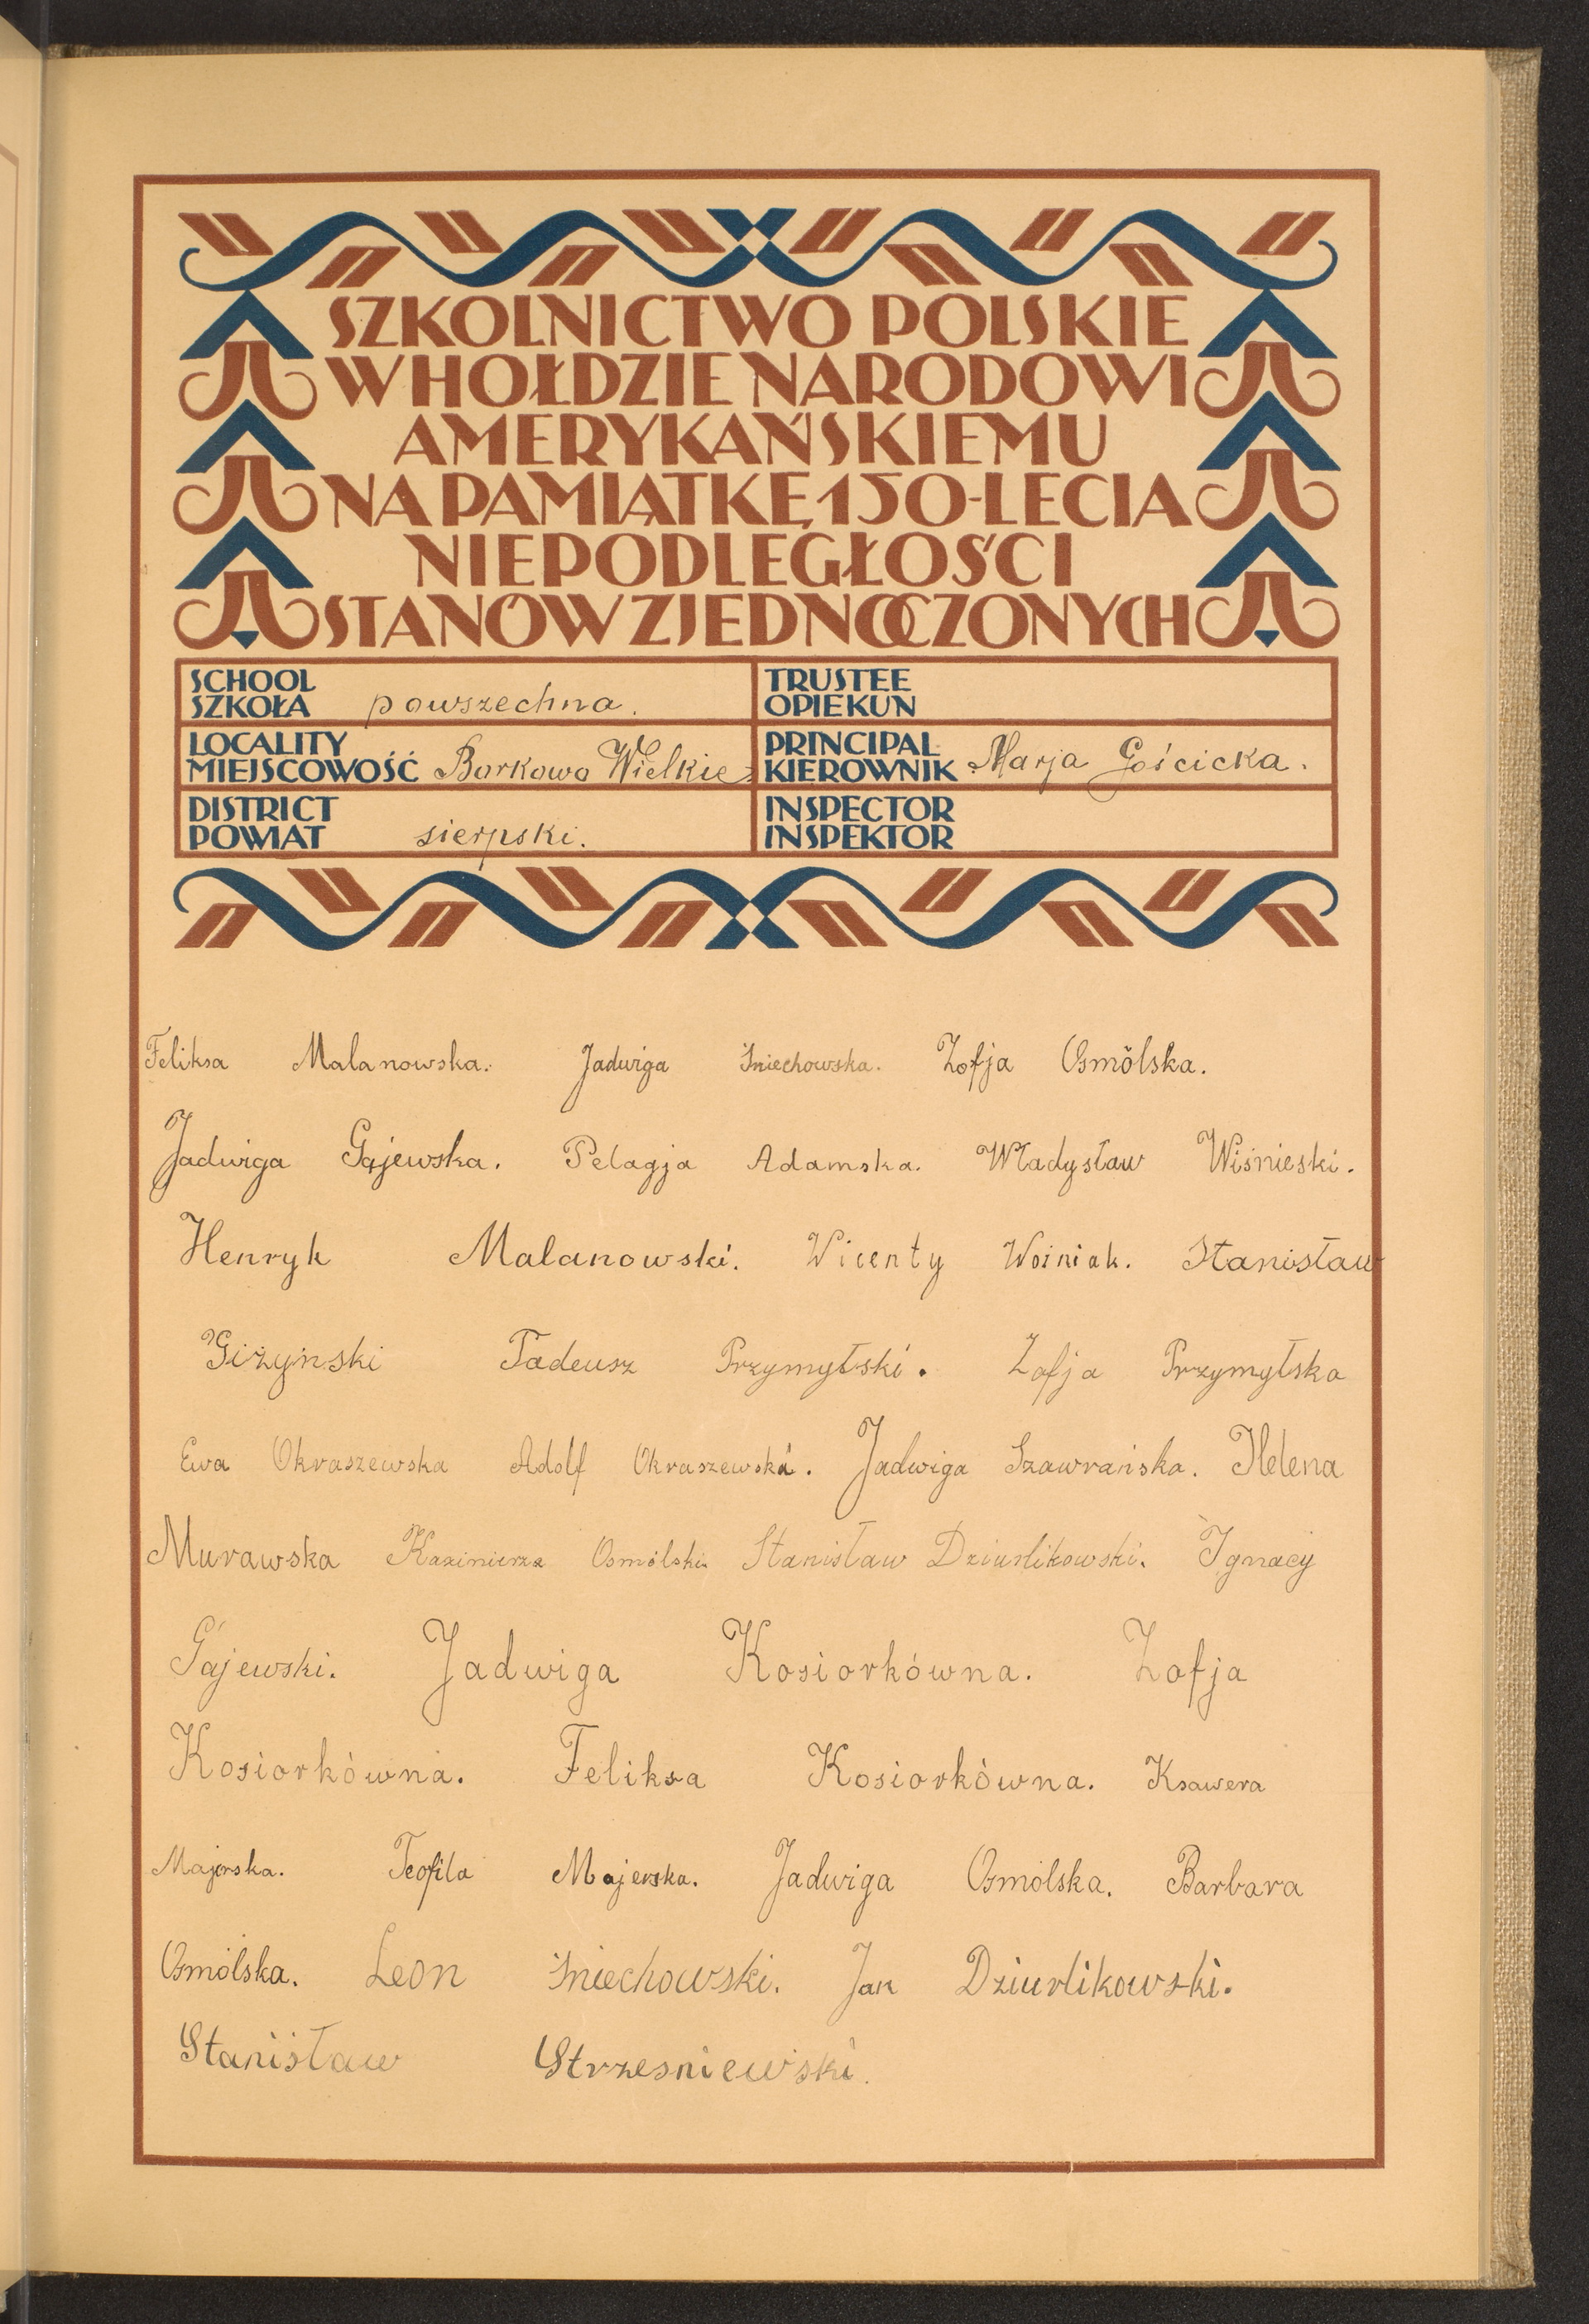 SZKOLNICTWO POLSKIE
W HOŁDZIE NARODOWI
AMERYKAŃSKIEMU
NA PAMIĄTKĘ 150-LECIA
NIEPODLEGŁOŚCI
STANÓW ZJEDNOCZONYCH
SCHOOL
SZKOŁA powszechna.
TRUSTEE
OPIEKUN
LOCALITY
MIEJSCOWOŚĆ Borkowo Wielkie
PRINCIPAL
KIEROWNIK Marja Gościcka.
DISTRICT
POWIAT sierpski.
INSPECTOR
INSPEKTOR
Feliksa Malanowska. Jadwiga Śniechowska. Zofja Osmólska.
Jadwiga Gajewska. Pelagja Adamska. Władysław Wiśnieski.
Henryk Malanowski. Wicenty Woźniak. Stanisław
Giżyński Tadeusz Przymyłski. Zofja Przymyłska
Ewa Okraszewska Adolf Okraszewski. Jadwiga Szawrańska. Helena
Murawska Kazimierz Osmólski. Stanisław Dziurlikowski. Ignacy
Gajewski. Jadwiga Kosiorkówna. Zofja
Kosiorkówna. Feliksa Kosiorkówna. Ksawera
Majerska. Teofila Majerska. Jadwiga Osmólska. Barbara
Osmólska. Leon Śniechowski. Jan Dziurlikowski.
Stanisław Strzesniewski.